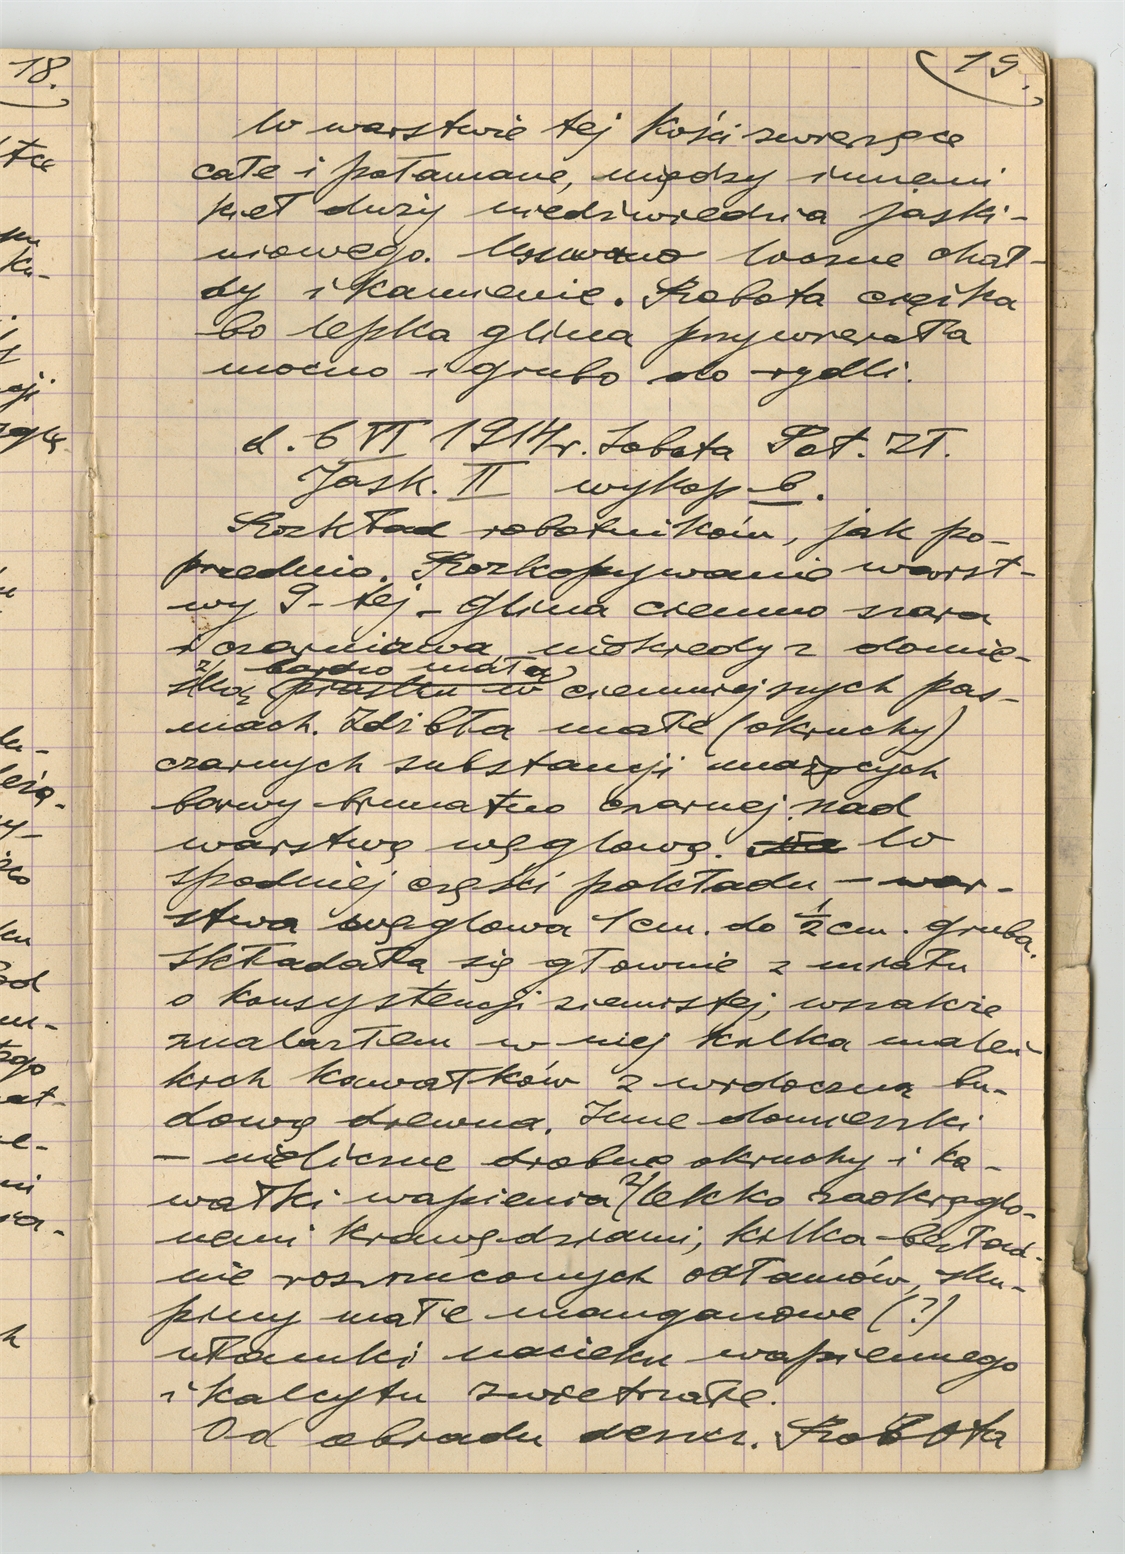 18.
19.
W warstwie tej kości zwierzęce
całe i połamane, między innemi
kieł duży niedźwiedzia jaski-
niowego. Usuwano luźne chał-
dy i kamienie. Robota ciężka
bo lepka glina przywierała
mocno i grubo do rydli.
d. 6 VI 1914 r. Sobota Pot. Zł.
Jask. II wykop b.
Rozkład robotników, jak po-
przednio. Rozkopywanie warst-
wy 9-tej – glina ciemno szara
i czarniawa niekiedy z domie-
z bardzo małą
szką piasku w ciemniejszych pas-
mach. Zdźbła małe (okruchy)
czarnych substancji mażących
barwy brunatno czarnej nad
warstwą węglową. W
spodniej części pokładu – war-
stwa węglowa 1 cm. do ½ cm. gruba.
Składała się głownie z miału
o konsystencji ziemistej, wszakże
znalazłem w niej kilka maleń-
kich kawałków z widoczną bu-
dową drewna. Inne domieszki
– nieliczne drobne okruchy i ka-
wałki wapienia z lekko zaokrąglo-
nemi krawędziami, kilka bezład-
nie rozrzuconych odłamów, sku-
piny małe manganowe (?)
ułamki nacieku wapiennego
i kalcytu zwietrzałe.
Od obiadu deszcz. Robota